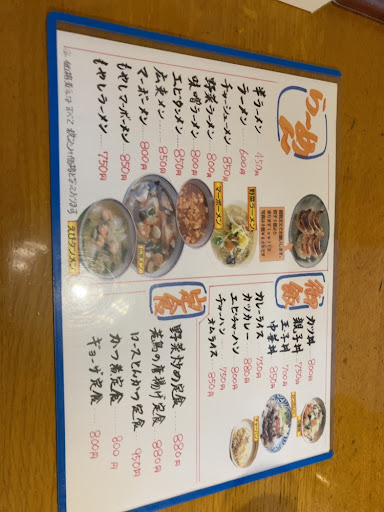 らーめん
半ラーメン 450円
ラーメン 600円
チャーシューメン 850円
野菜ラーメン 800円
味噌ラーメン 800円
エビタンメン 850円
広東メン 850円
マーボーメン 800円
もやしマーボメン 850円
もやしラーメン 750円
野菜ラーメン
マーボーメン
えびタンメン
御飯
カツ丼 800円
親子丼 750円
玉子丼 700円
中華丼 850円
カレーライス 750円
カツカレー 880円
エビチャーハン 800円
チャーハン 750円
オムライス 850円
定食
野菜炒め定食 880円
若鳥の唐揚げ定食 880円
ロースとんかつ定食 950円
かつ煮定食 800円
ギョーザ定食 800円